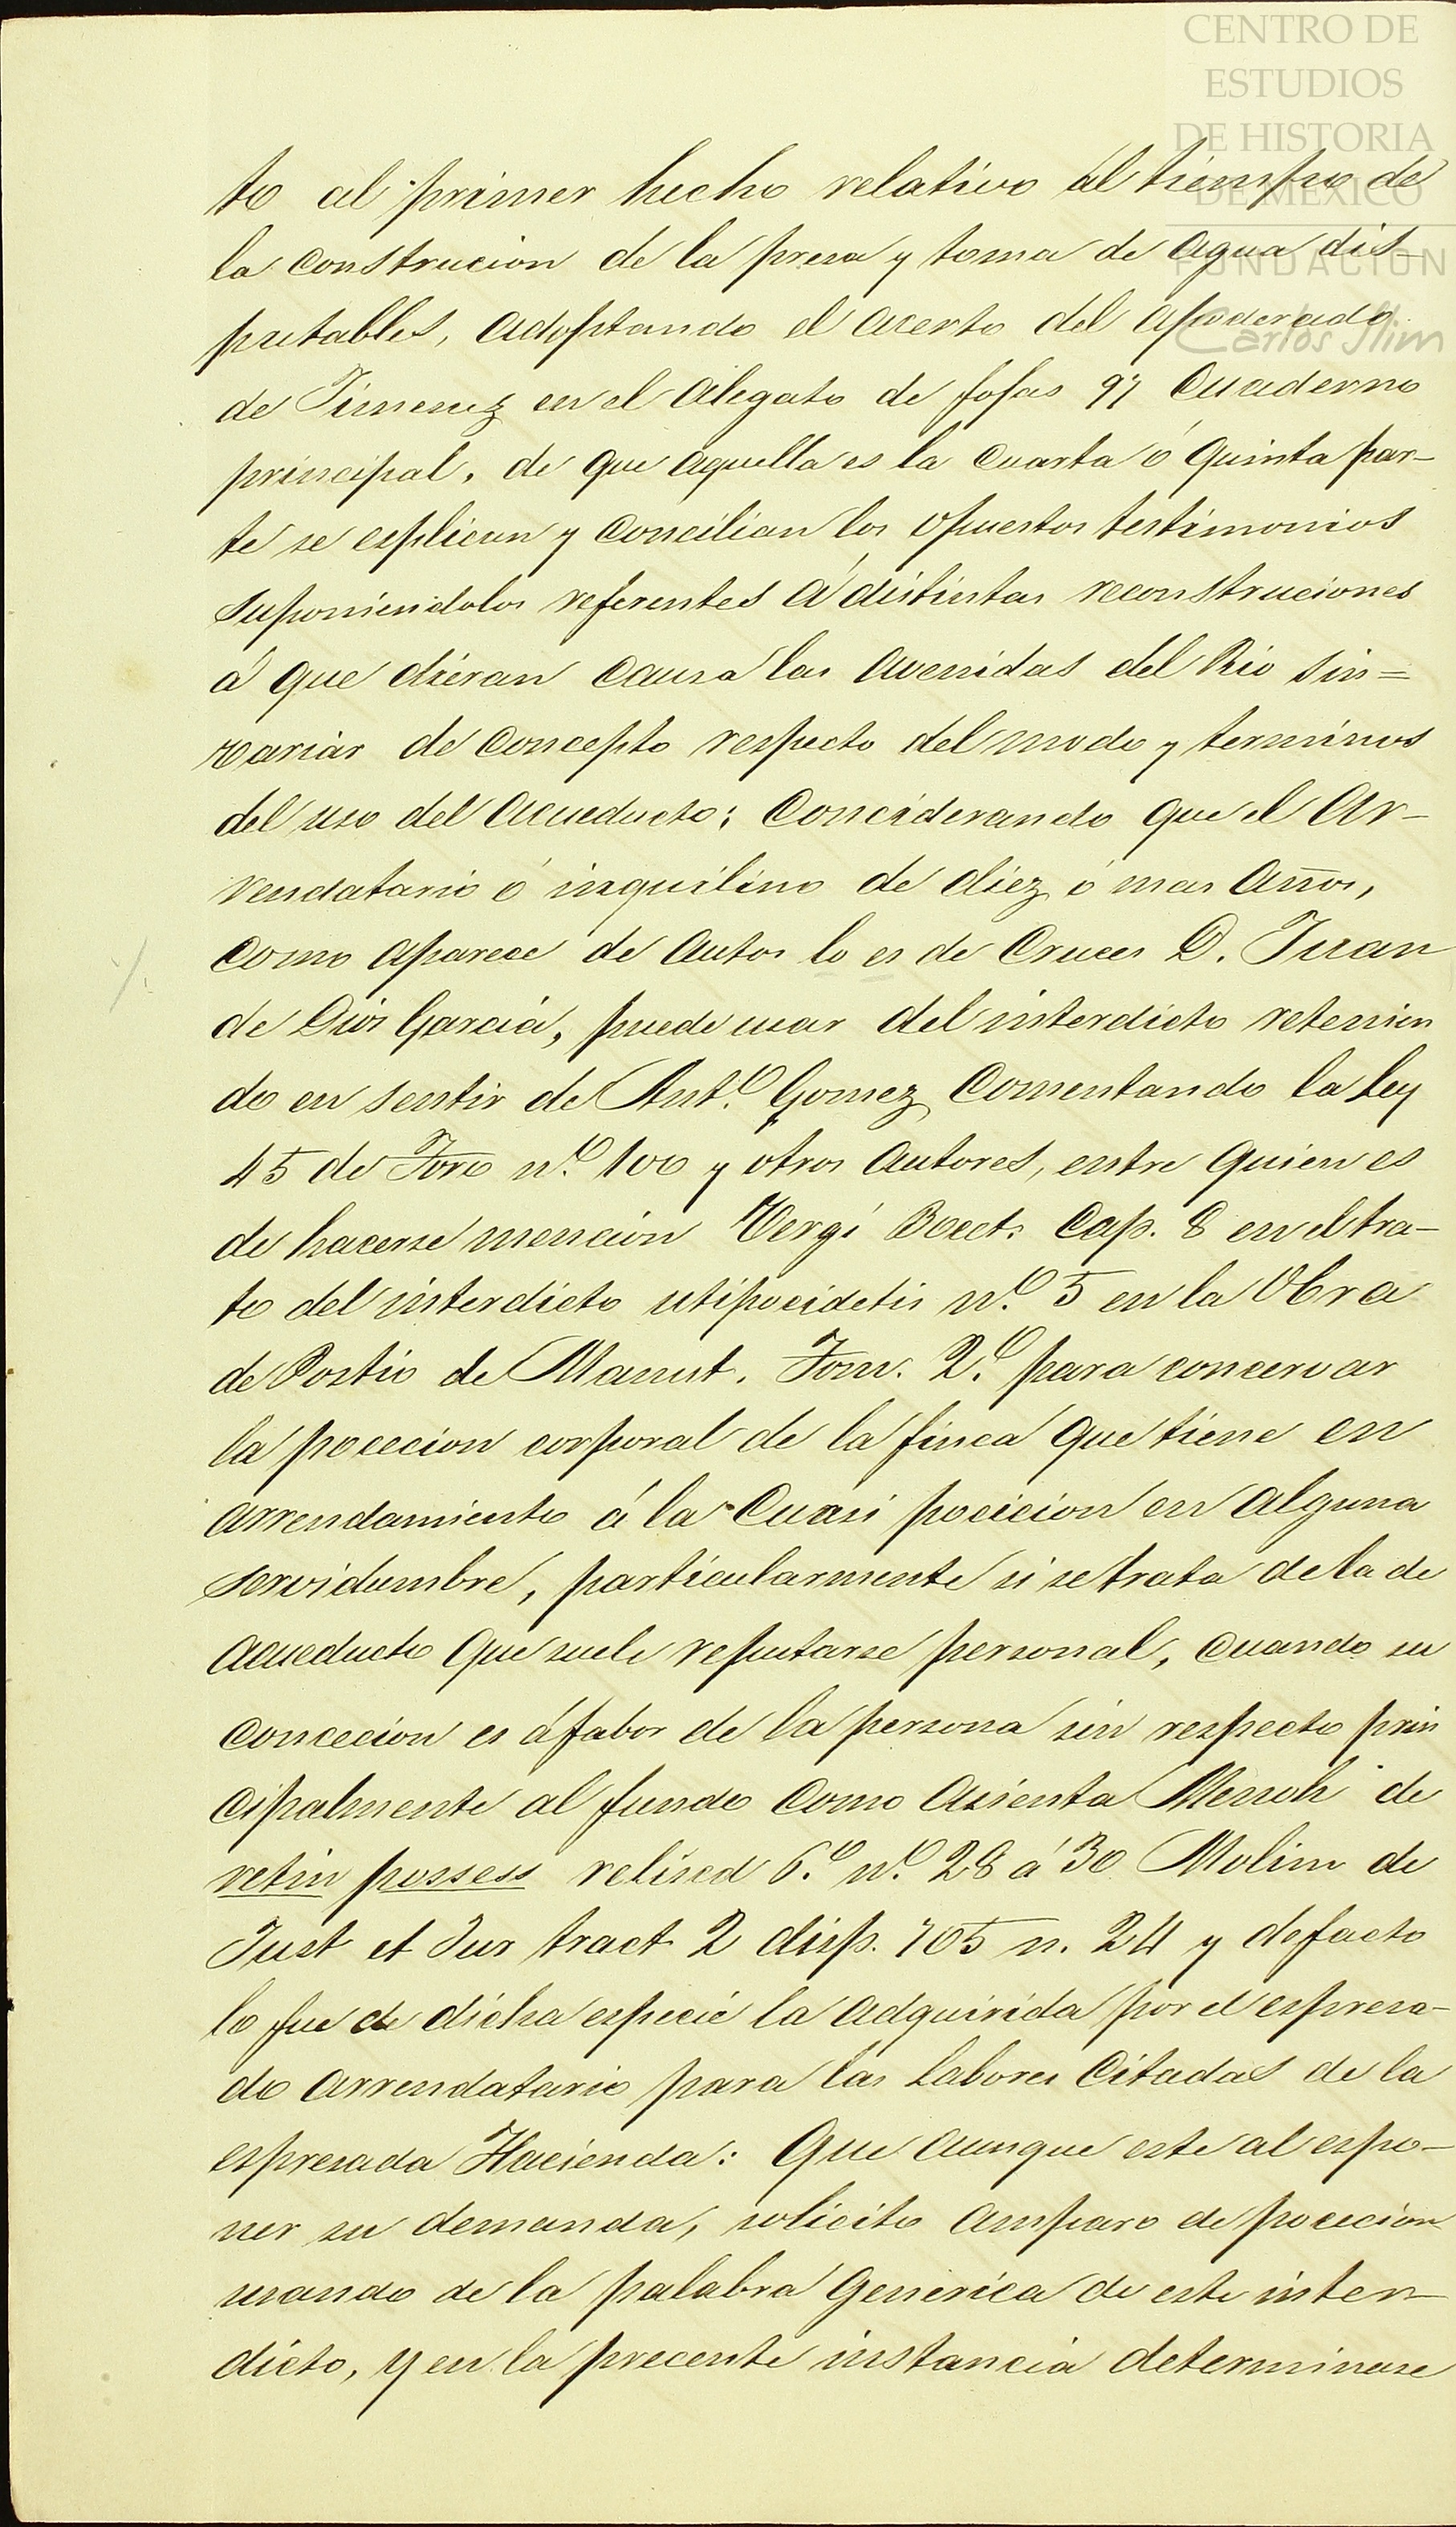 CENTRO DE
ESTUDIOS
DE HISTORIA
DE MEXICO
FUNDACIÓN
Carlos Slim
to al primer hecho relativo al tiempo de
la construcion de la presa y toma de agua dis-
putables, adoptando el acerto del apoderado
de Jimenez en el alegato de fojas 97 Cuaderno
principal, de que aquella es la cuarta ó quinta par-
te se esplican y concilian los opuestos testimonios
suponiendolos referentes á distintas reconstruciones
á que dieran causa las avenidas del Rio sin=
variar de concepto respecto del modo y terminos
del uso del acueducto; Conciderando que el Ar-
rendatario ó inquilino de diez ó mas años,
como aparece de autos lo es de Cruces D. Juan
de Dios Garcia, puede usar del interdicto retenien
do en sentir de Ant.º Gomez, Comentando la Ley
45 de Toro n.º 100 y otros autores, entre quienes
de hacerse mencion Cap. 8 en el tra-
to del interdicto utipocidetis n.º 5 en la Obra
de Postio de Manut. Tom. 2.º para concervar
la pocecion corporal de la finca que tiene en
arrendamiento á la Cuasi pocicion en alguna
servidumbre, particularmente si se trata de la de
acueducto que suele reputarse personal, cuando su
concecion es á fabor de la persona sin respecto prin
cipalmente al fundo como asienta Menoh de
retin possess 6.º n.º 28 á 30 Molin de
Just et Jur tract 2 disp. 705 n. 24 y de facto
lo fue de dicha especie la adquirida por el espresa-
do arrendatario para las Labores Citadas de la
espresada Hacienda: Que aunque este al espo-
ner su demanda, solicito amparo de pocecion
usando de la palabra generica de este inter-
dicto, y en la precente instancia determinase